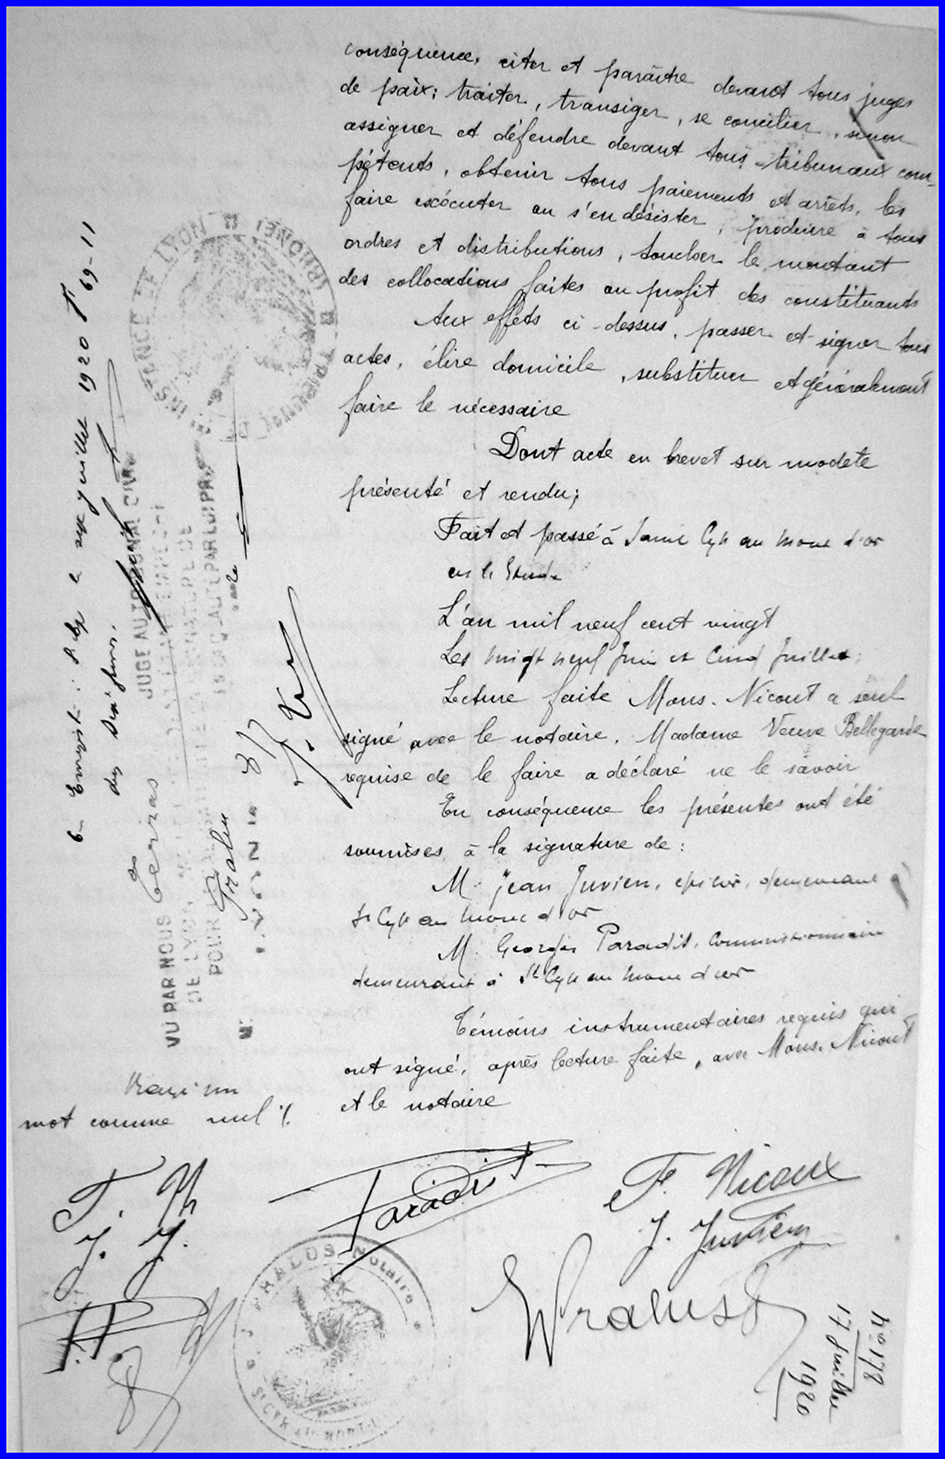 conséquence, citer et paraître devant tous juges
de paix; traiter, transiger, se concilier, sinon
assigner et défendre devant tous tribunaux com-
pétents, obtenir tous paiements et arrêts, les
faire exécuter ou s'en désister, produire à tous
ordres et distributions, toucher le montant
des collocations faites au profit des constituants
Aux effets ci-dessus, passer et signer tous
actes, élire domicile, substituer et généralement
faire le nécessaire
Dont acte en brevet sur modèle
présenté et rendu;
Fait et passé à Saint Cyr au Mont d'or
en l'Etude
L'an mil neuf cent vingt
Les vingt neuf Juin et Cinq Juillet;
Lecture faite Mons. Nicout a seul
signé avec le notaire, Madame Veuve Bellegarde
requise de le faire a déclaré ne le savoir
En conséquence les présentes ont été
soumises à la signature de:
M. Jean Juvien, épicier, demeurant à
St Cyr au Mont d'or
M. Georges Paradis, Commissionnaire
demeurant à St Cyr au Mont d'or
Témoins instrumentaires requis qui
ont signé, après lecture faite, avec Mons. Nicout
et le notaire
Rayé un
mot comme nul /.
Paradis
F. Nicout
J. Juvien
J. PRALUS Notaire
ST CYR AU MONT-D'OR
No 178
17 Juillet
1920
juillet 1920 fo 69-11
TRIBUNAL DE 1re INSTANCE DE LYON (RHONE)
VU PAR NOUS
JUGE AU TRIBUNAL CIVIL
DE LYON
POUR
LYON le